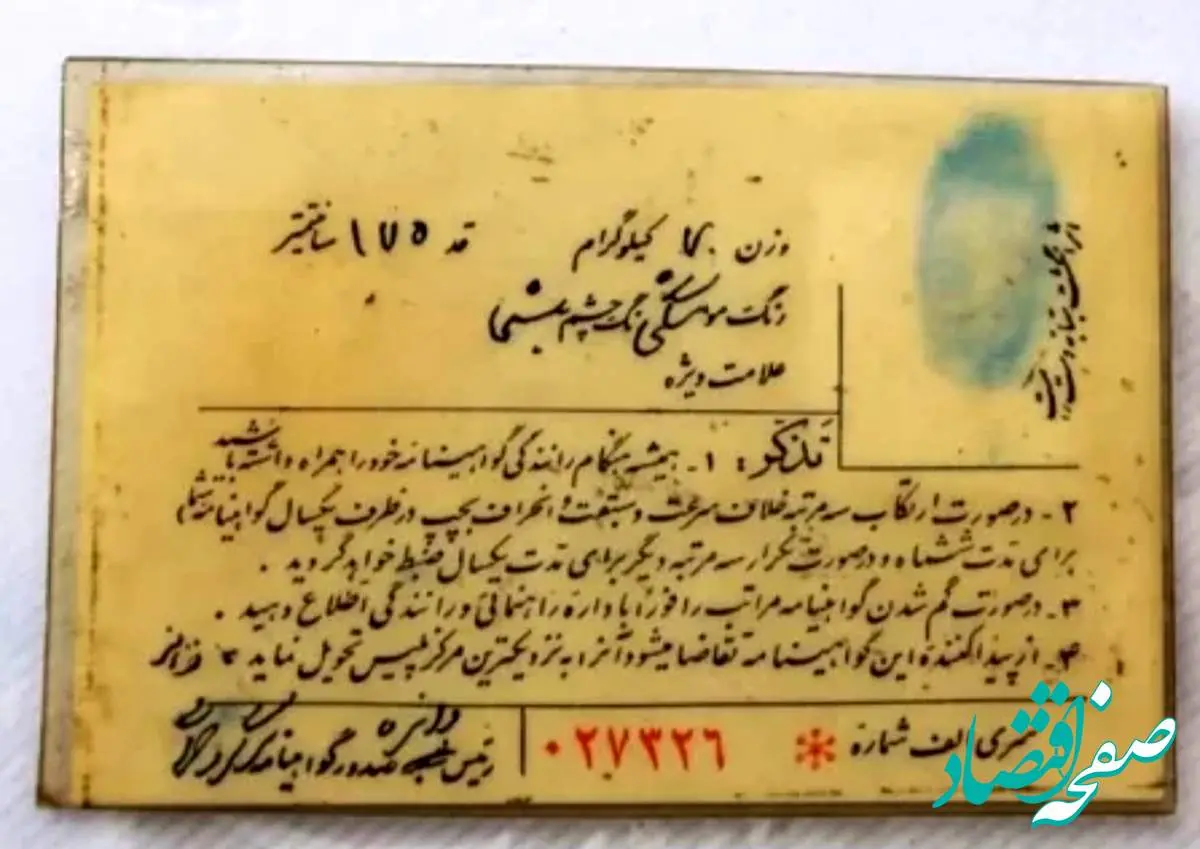 وزن ۷۰ کیلوگرام قد ۱۷۵ سانتیمتر
رنگ مو مشکی رنگ چشم میشی
علامت ویژه
اثر انگشت سبابه دست راست
تذکر: ۱- همیشه هنگام رانندگی گواهینامه خود را همراه داشته باشید
۲- در صورت ارتکاب سه مرتبه خلاف سرعت و سبقت و انحراف بچپ در ظرف یکسال گواهینامه شما
برای مدت ششماه و در صورت تکرار سه مرتبه دیگر برای مدت یکسال ضبط خواهد گردید .
۳- در صورت گم شدن گواهینامه مراتب را فوراً باداره راهنمائی و رانندگی اطلاع دهید .
۴- از پیدا کننده این گواهینامه تقاضا میشود آنرا به نزدیکترین مرکز پلیس تحویل نماید
سری الف شماره * ۰۲۷۳۲۶
رئیس دایره صدور گواهینامه
صفحه اقتصاد